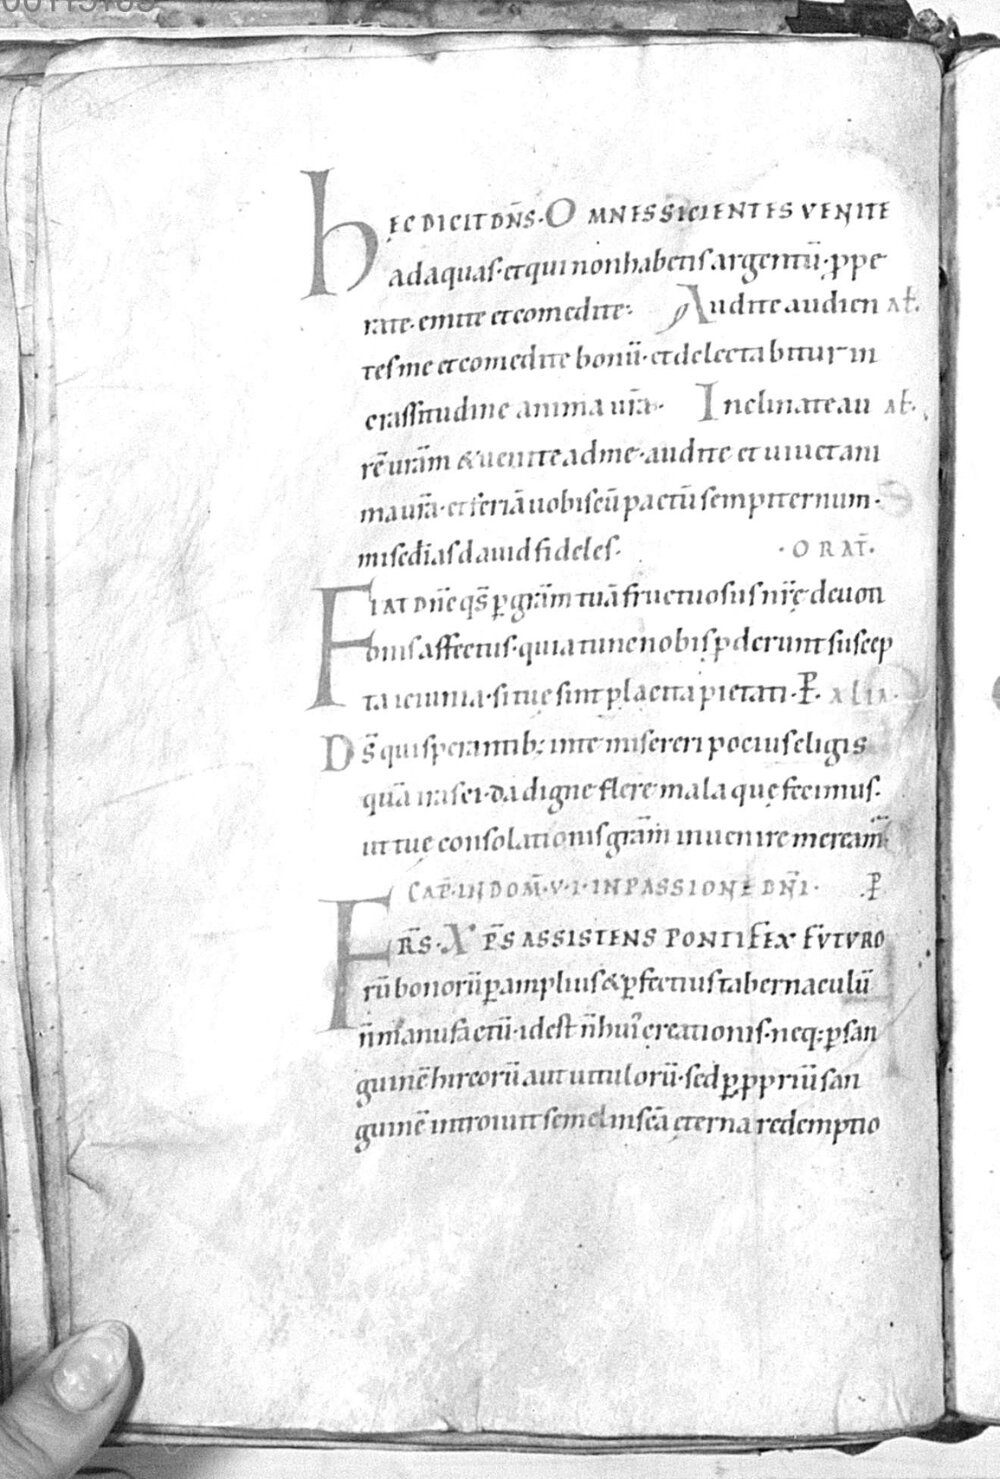 hEC DICIT DN̄S· OMNES SICIENTES VENITE
ad aquas· et qui non habetis argentū· ꝓpe
rate· emite et comedite· Audite audien al̄.
tes me et comedite bonū· et delectabitur in
crassitudine anima ur̄a· Inclinate au al̄.
rē urām & uenite ad me· audite et uiuet ani
ma ur̄a· et feriā uobiscū pactū sempiternum·
misedīas dauid fideles· ·ORAT̄·
FIAT Dn̄e qs̄ ꝑ grām̄ tuā fructuosus nr̄ę deuoti
onis affectus· quia tunc nobis ꝓderunt suscep
ta ieiunia· si tuę sint placita pietati· P̄· alia·
Ds̄ qui sperantib; in te misereri pocius eligis
quā irasci· da digne flere mala quę fecimus·
ut tuę consolationis grām̄ inuenire mereām̄·
CAP̄· IN DOM̄· V· I· IN PASSIONE DN̄I· P̄
FR̄S· XP̄S ASSISTENS PONTIFEX FVTVRO
rū bonorū ꝑ amplius & ꝑfectius tabernaculū
n̄ manufactū· id est n̄ hui᾽ creationis· neq; ꝑ san
guinē hircorū aut uitulorū· sed ꝑ ꝓpriū san
guinē introiuit semel in scā ęterna redemptio